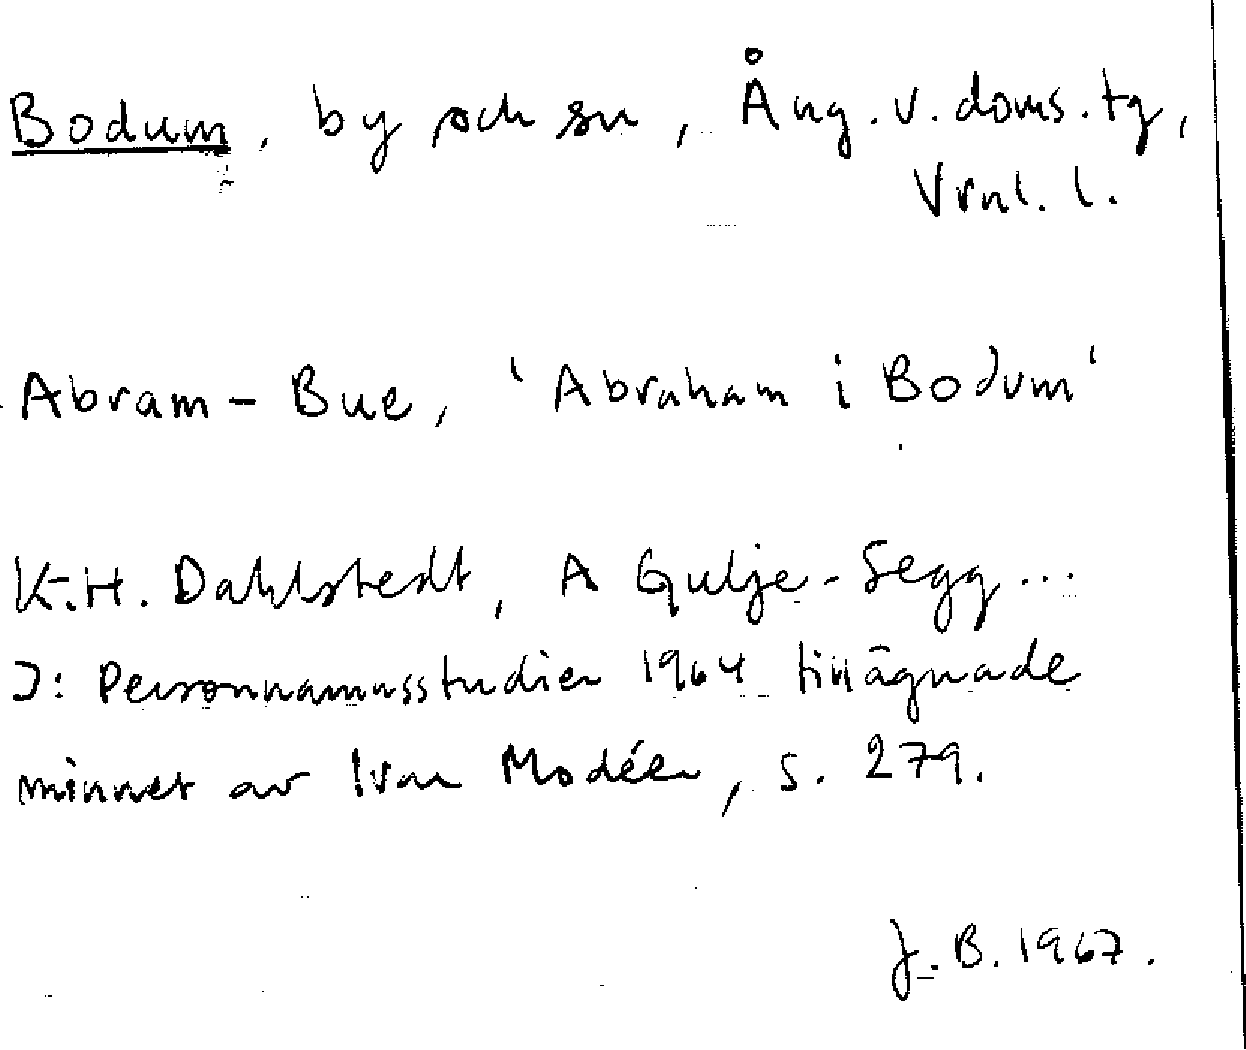 Bodum, by och sn, Ång. v. doms. tg,
Vrnl. l.
Abram-Bue, 'Abraham i Bodum'
K.-H. Dahlstedt, A Gulje-Segg...
I: Personnamnsstudier 1964 tillägnade
minnet av Ivar Modéer, s. 279.
J. B. 1967.